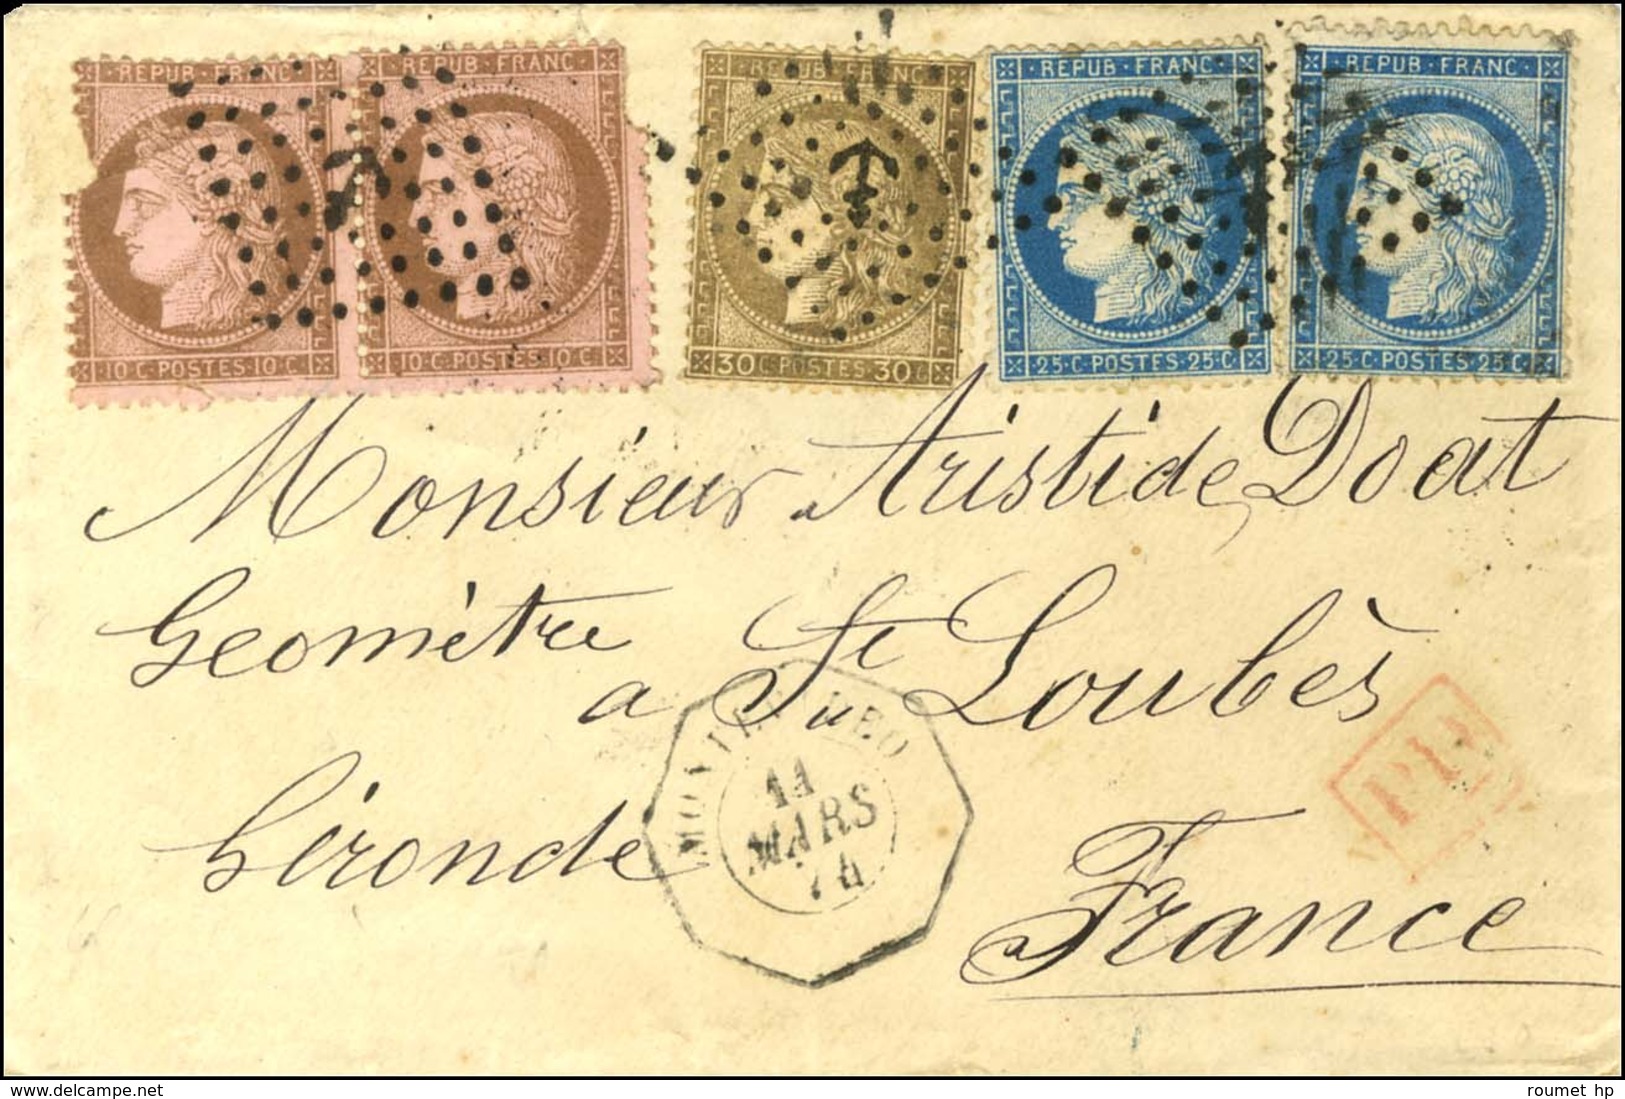 REPUB·FRANC
10·C·POSTES·10·C
REPUB·FRANC
10·C·POSTES·10·C
REPUB·FRANC
30C·POSTES·30C
REPUB·FRANC
25·C·POSTES·25·C
REPUB·FRANC
25·C·POSTES·25·C
Monsieur Aristide Doat
Géomètre a St Loubès
Gironde
France
MONTEVIDEO
11
MARS
74
PP
roumet hp